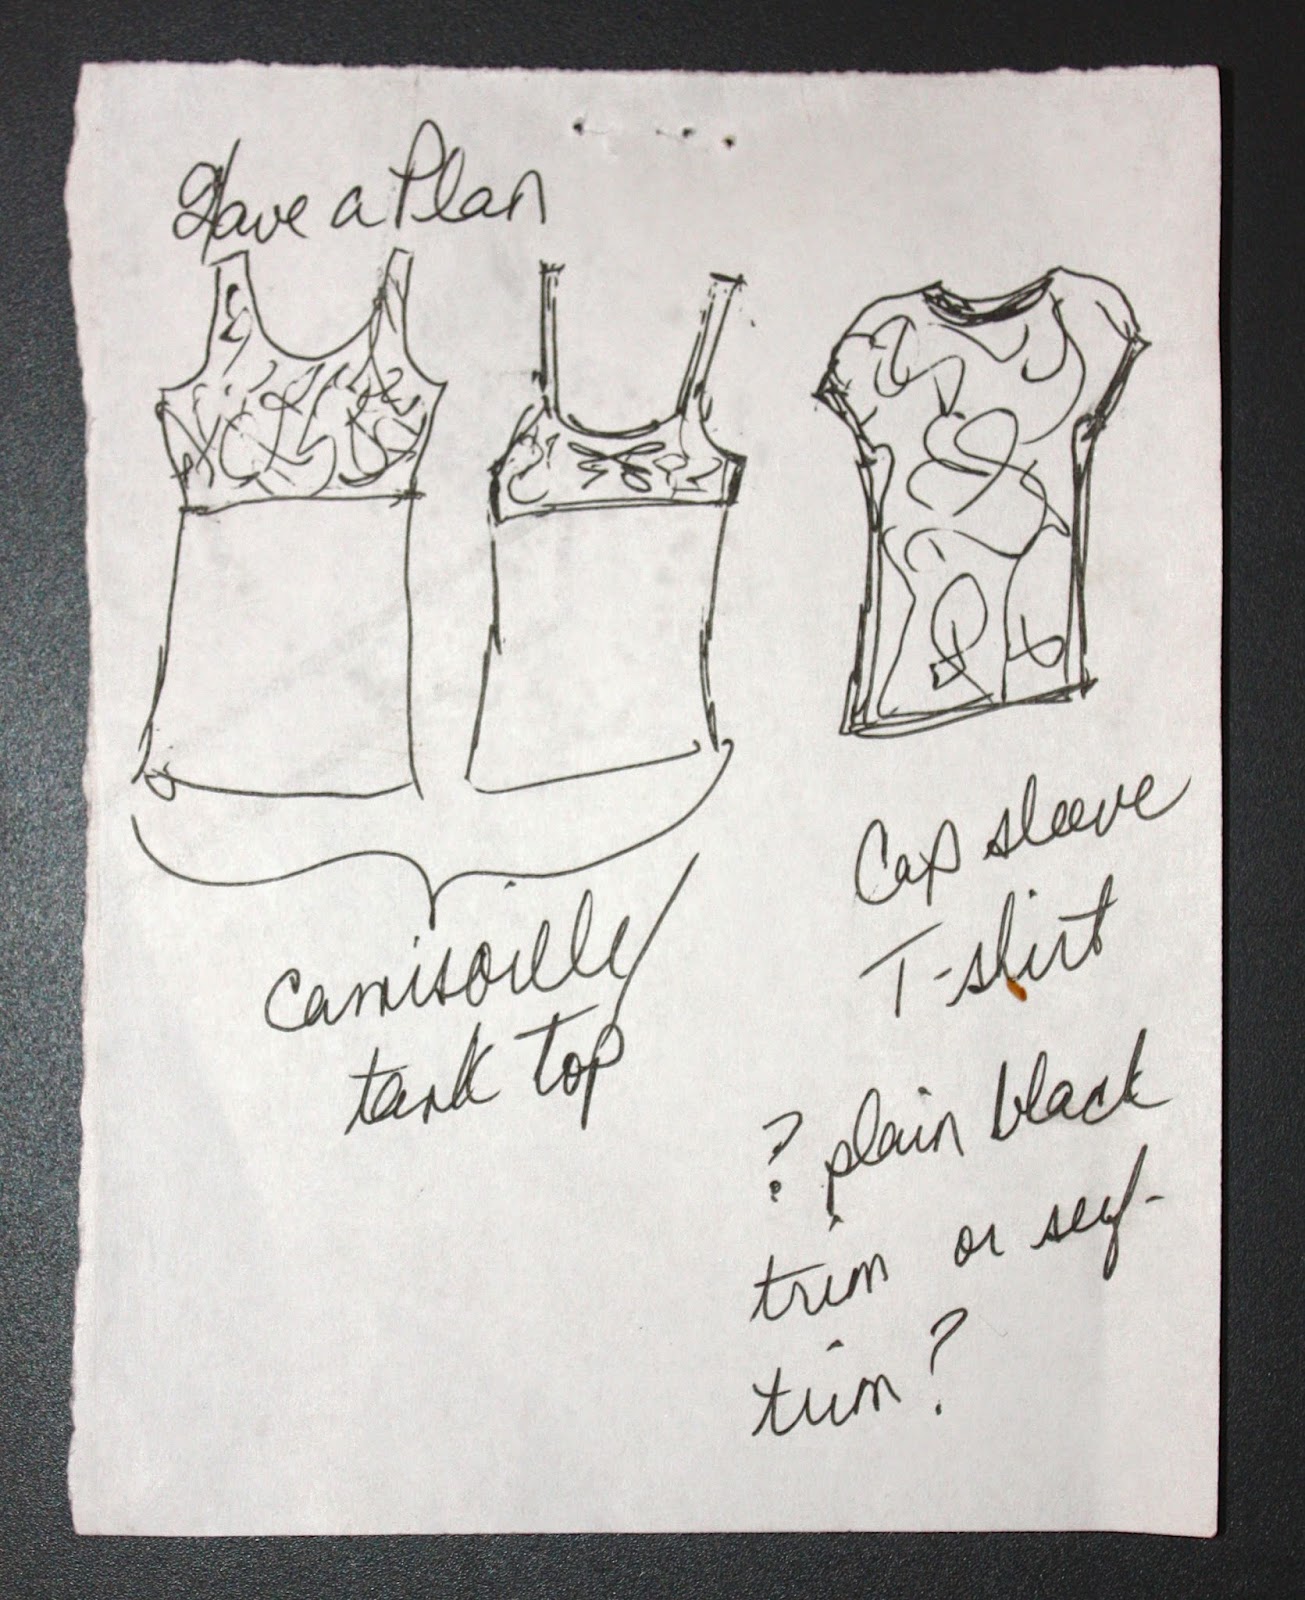 Have a Plan
camisoille/
tank top
Cap sleeve
T-shirt
? plain black
trim or self-
trim?